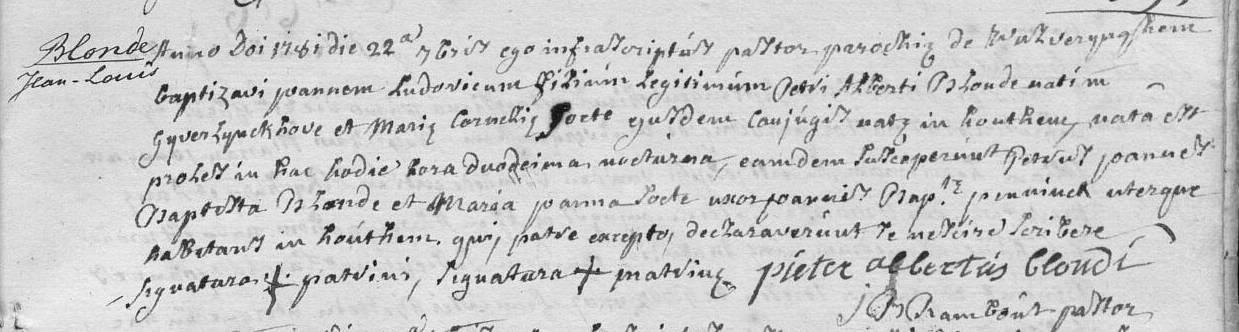 Blonde
Jean-Louis
Anno Doi 1781 die 22a 7bris ego infrascriptús pastor parochiæ de Wulverynghem
baptizavi joannem Ludovicum filiúm Legitimúm Petri Alberti Blonde nati in
Gyverlynckhove et Mariæ Corneliæ Socte ejusdem Conjúgis natæ in houthem, nata est
proles in hac hodie hora duodecima nocturna, eamdem susceperúnt Petrus joannes
Baptista Blonde et Maria joanna Socte uxor joannis Bap.tæ uterque
habitans in hoúthem. quj patre excepto, declaraverúnt se nescire scribere
Signatura + patrini, Signatura + matrinæ pieter albertús blondé
J B Ramboút pastor